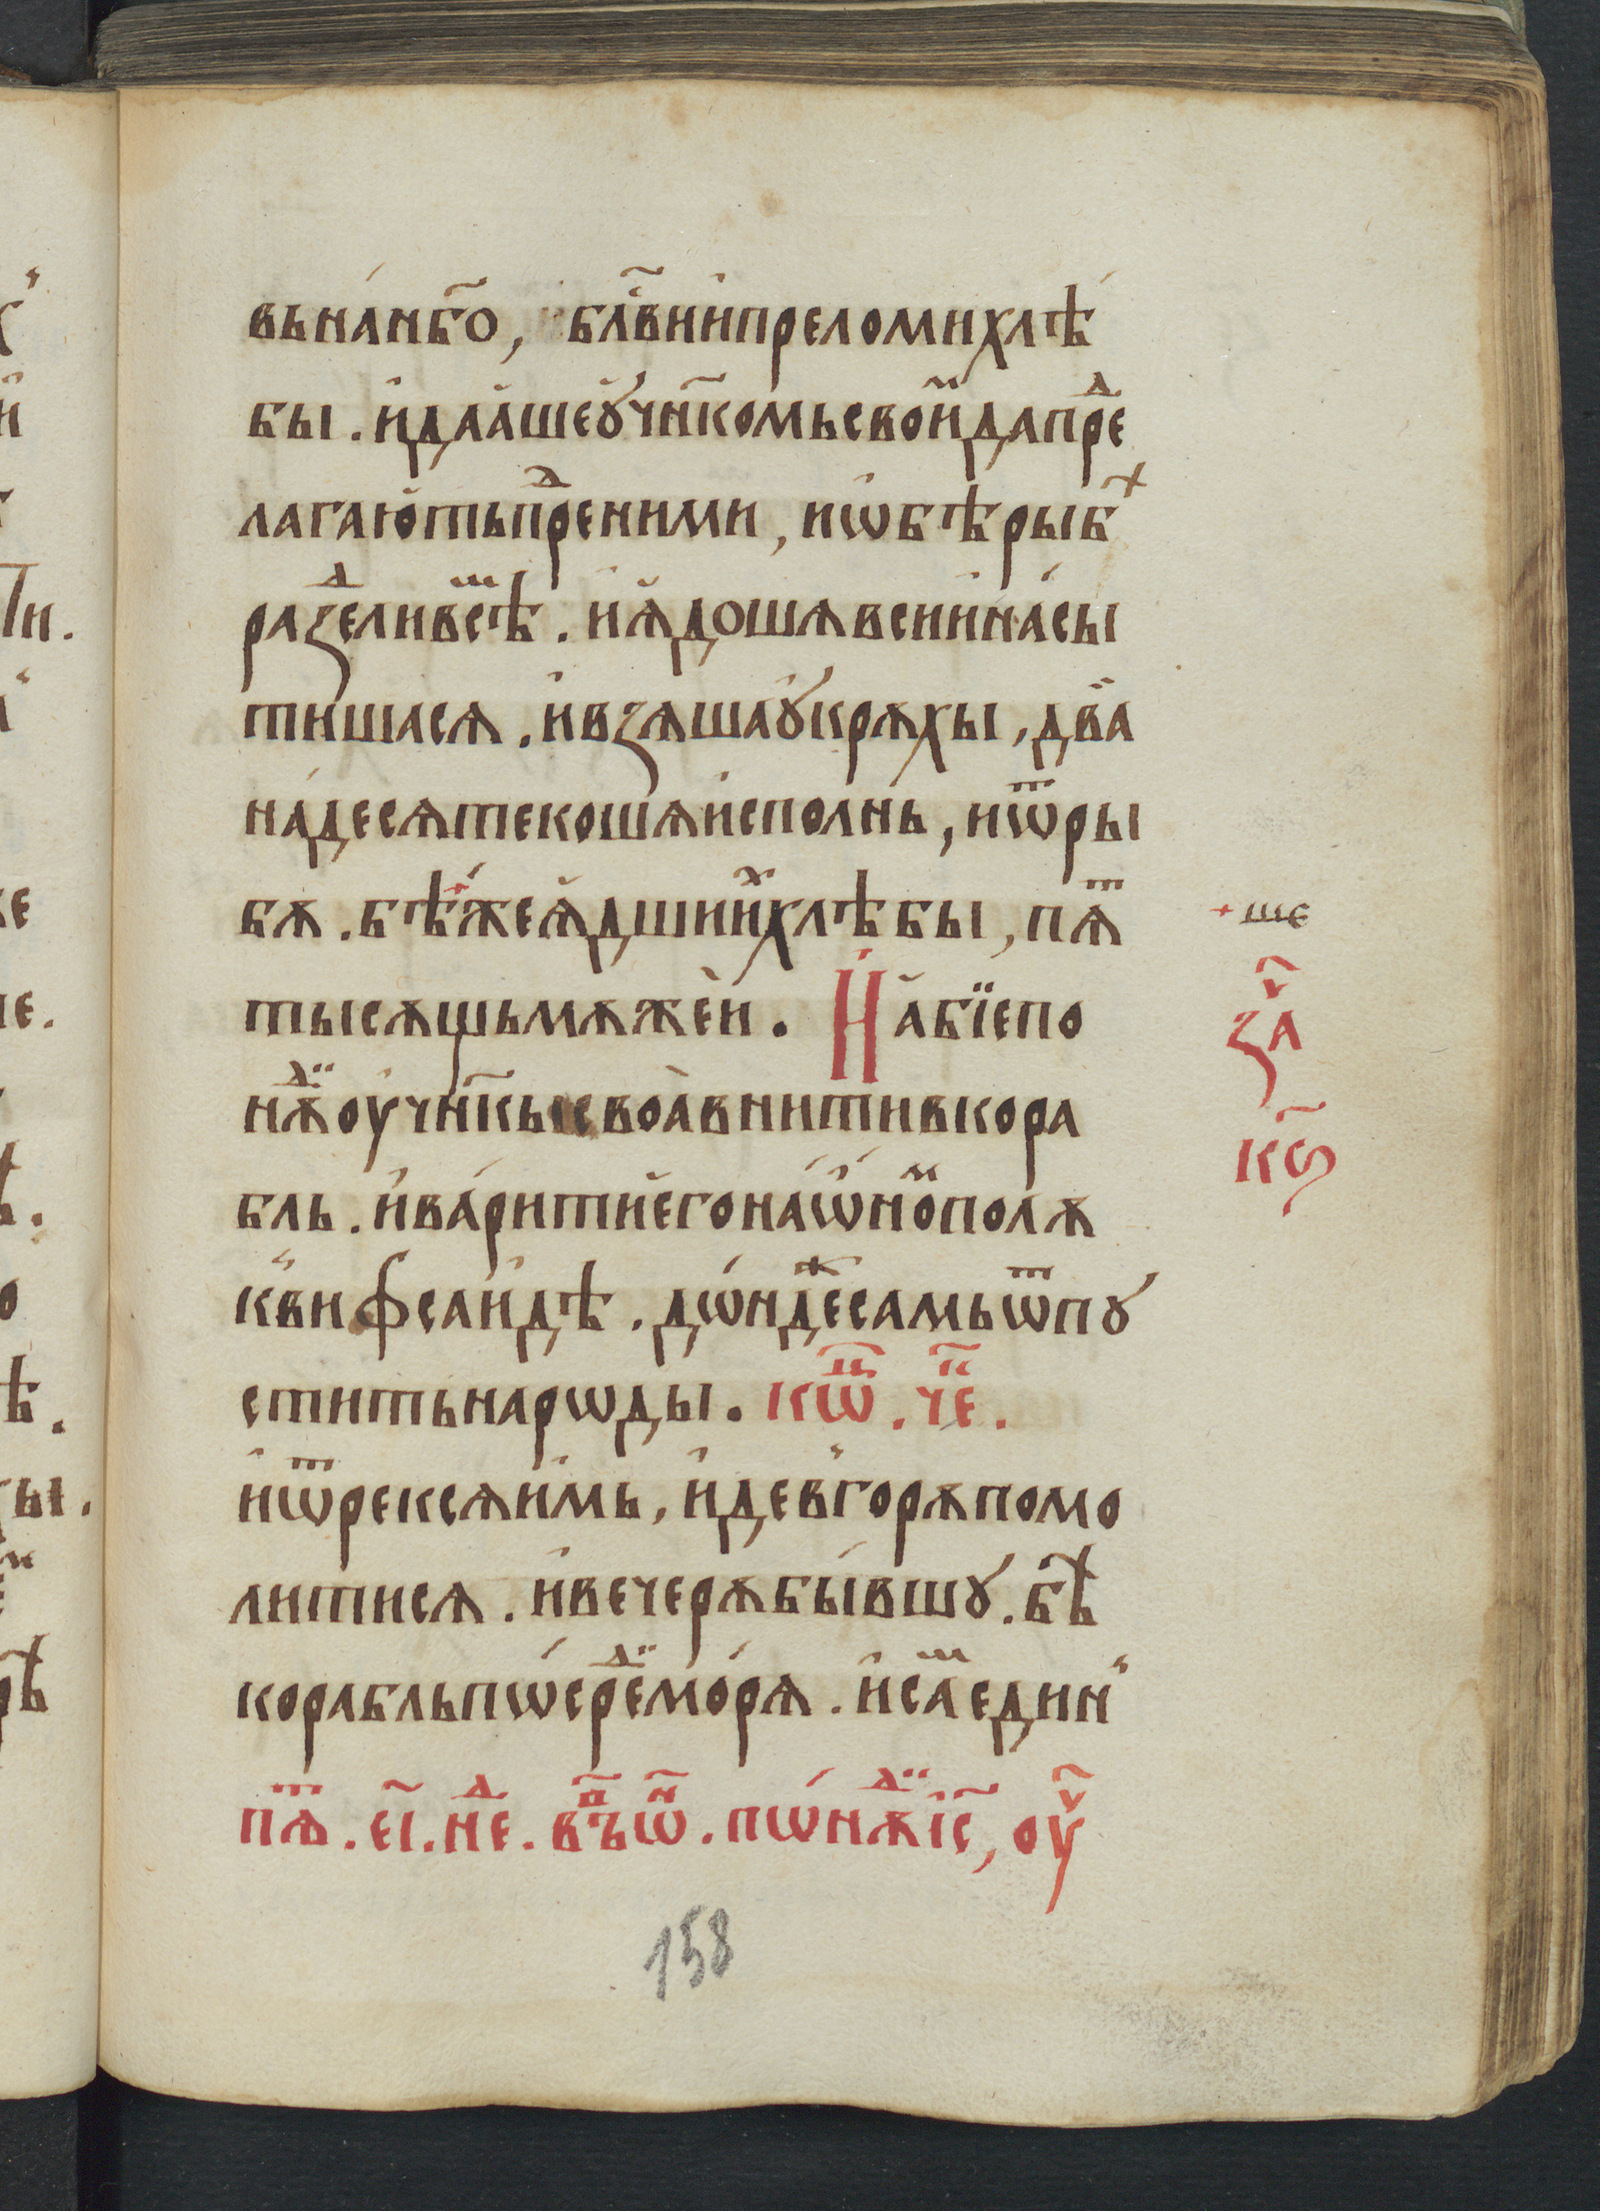 вьна́нб҃о, блⷭ҇внипреломихлѣ
бы. и҆даа҆шеꙋ҆чн҃комьсвои҆ⷨдапреⷣ
лагаю҆тьпреⷣними, иѡбѣрыбⷯ
разⷣеливсⷨѣ. иꙗ҆дошѧвсиина́сы
тишасѧ. и҆взѧшаꙋ҆крѹхы, два
на́десѧтекошѧи҆сполнь, иѿры
бѫ. бѣ́жеꙗ҆дшии҆ⷯхлѣбы, пѧⷮ
тысѧщьмѫже́и. И҆а҆бїепо
нѫⷣоучн҃кысвоа҆внитивкора
бль. и҆ва́ритиегона́ѡ҆нⷨополѫ
квиѳсаи҆дѣ. дѡ́ндⷤесамьѿпꙋ
ститьнарѡды. кѡⷩ҇ⷰ. чеⷮ.
иѿрексѧимь, и҆девгорѫпомо
литисѧ. и҆вечерѫбы́вшꙋ. бѣ
корабльпѡ́среⷣмо́рѫ. и҆саⷨедин
пѧⷮ. е҃і. неⷣ. въⷫѡⷩ. пѡ́нѫⷣі҃с, оу
ше
заⷱ
кѕ҃
158